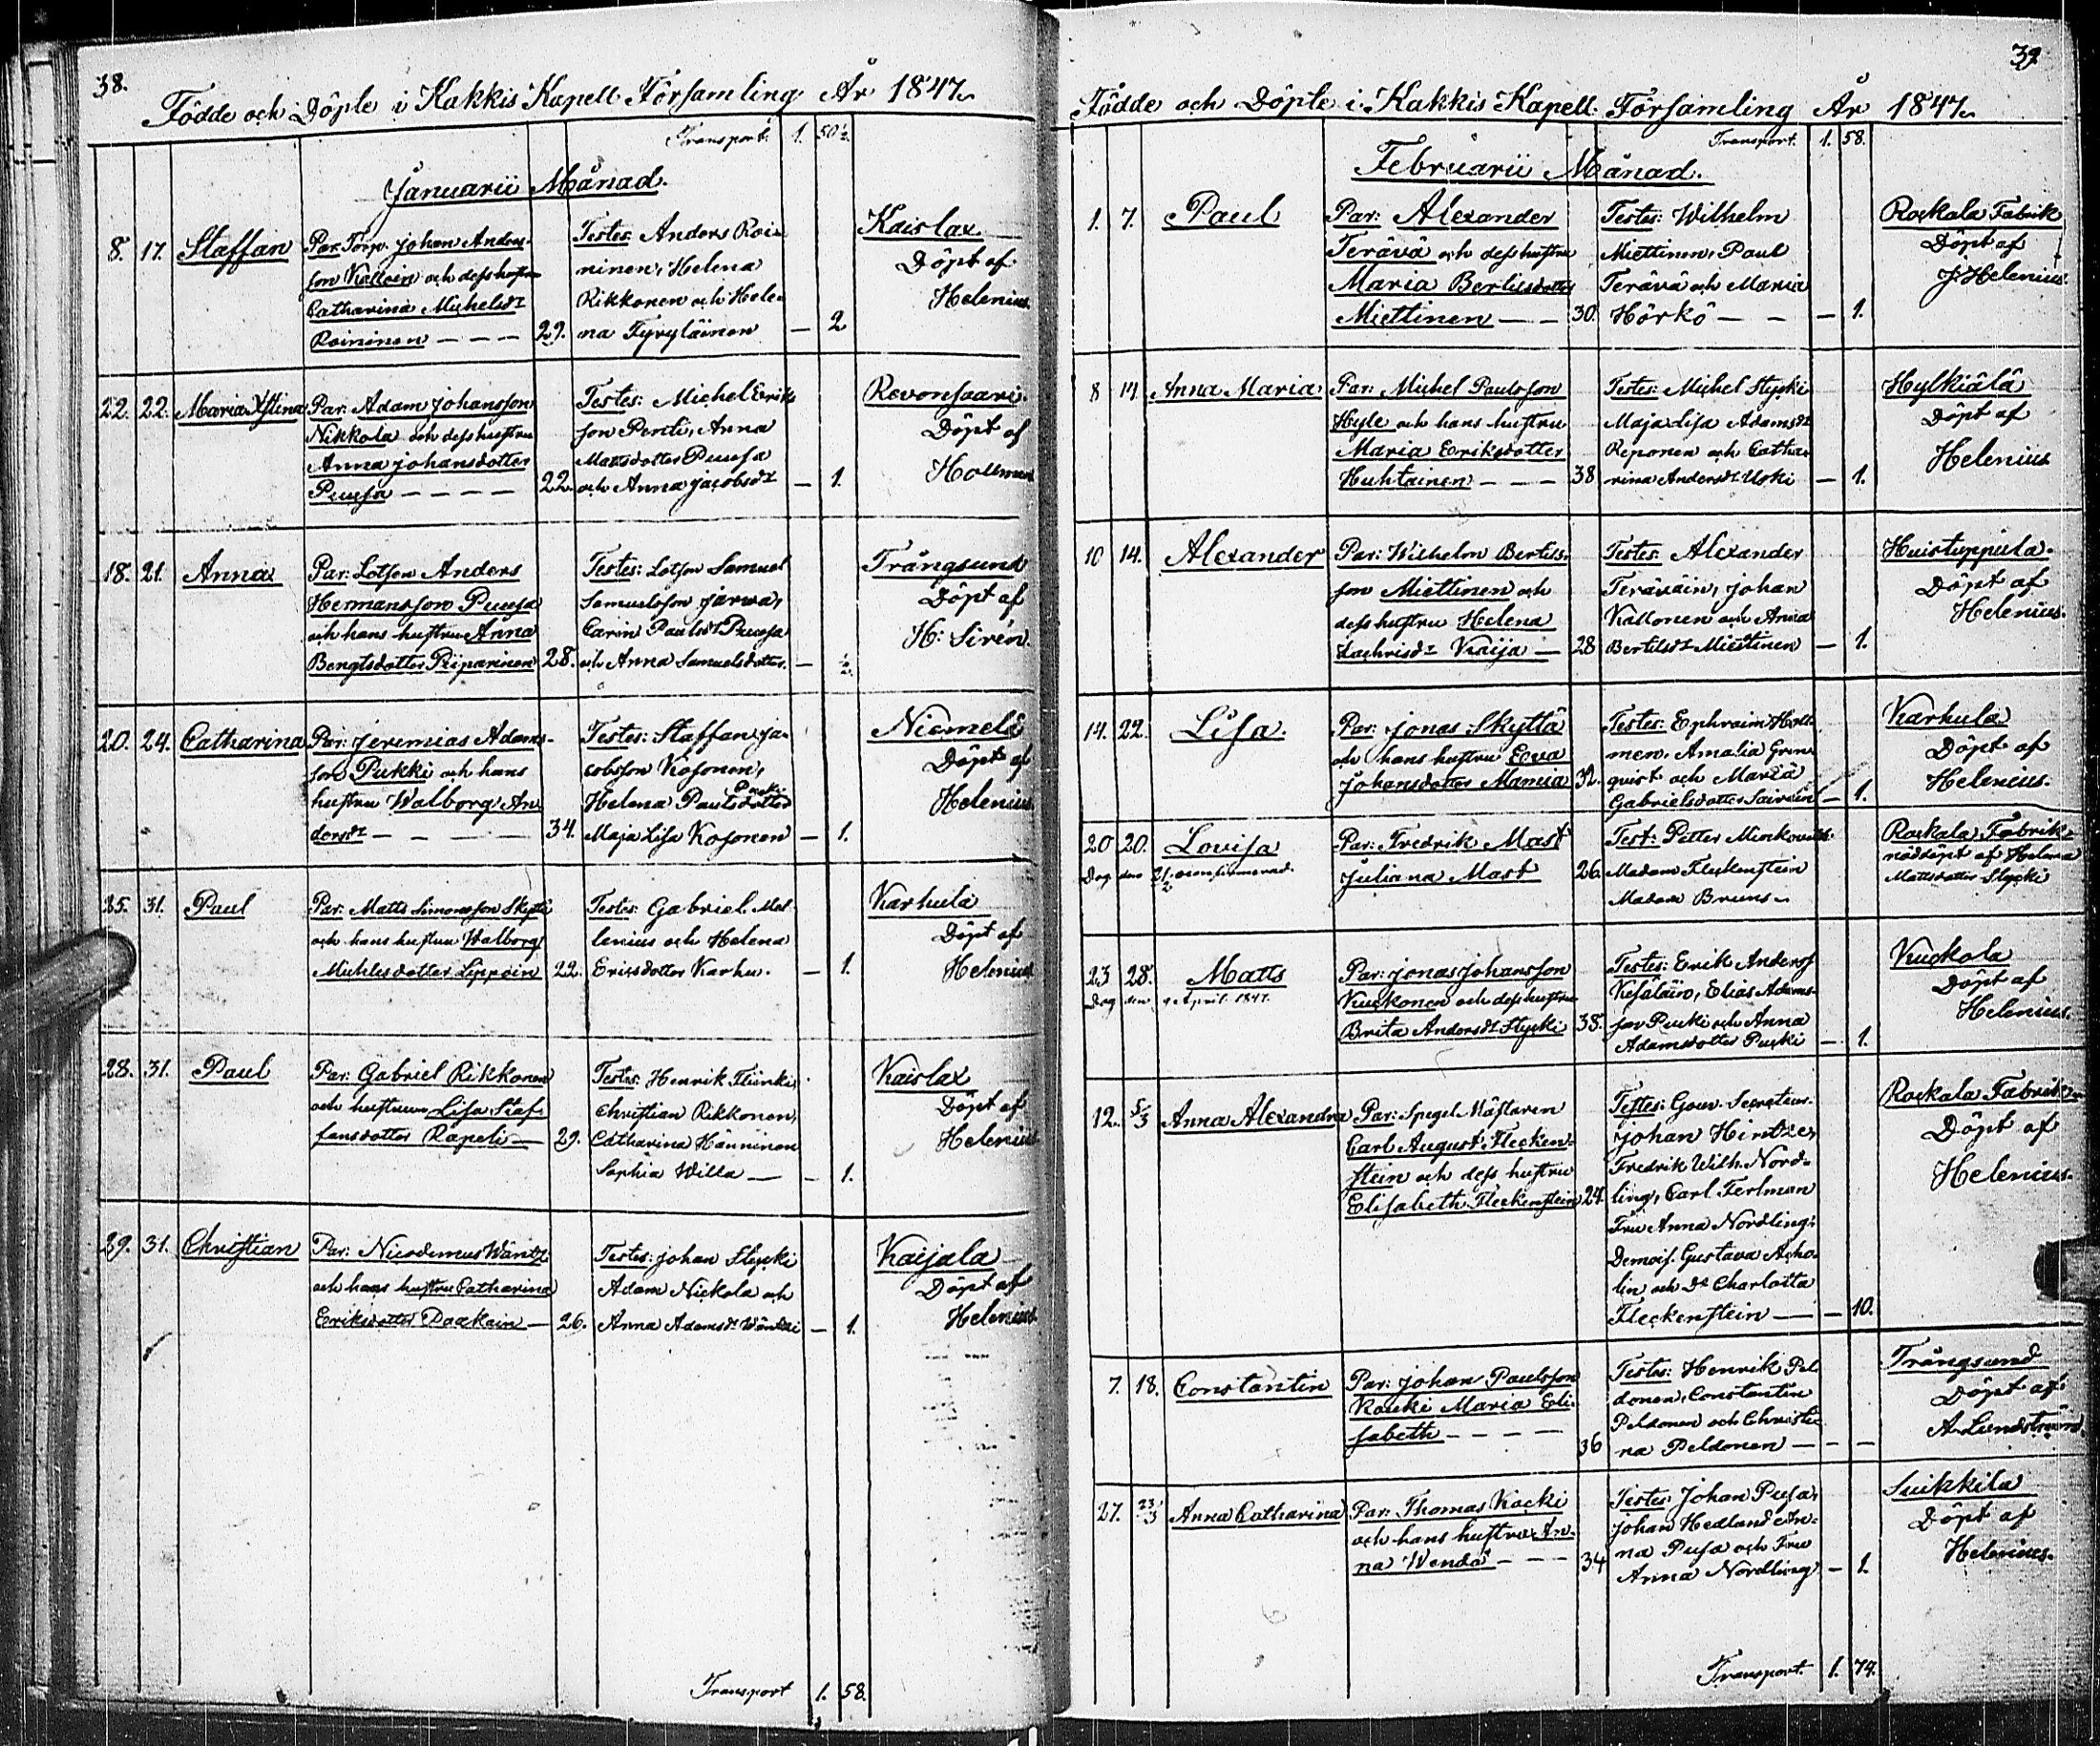 38.
Födde och Döpte i Kakkis Kapell Församling År 1847.
Transport. 1. 50½
Januarii Månad.
8. 17. Staffan
Par: Torp. Johan Anders-
son Kalloin och dess hustru
Catharina Michelsdr
Roininen — — — 29.
Testes: Anders Roi-
ninen, Helena
Rikkonen och Hele-
na Tyryläinen — 2
Kaislax
Döpt af
Helenius.
22. 22. Maria Stina
Par: Adam Johansson
Nikkola och dess hustru
Anna Johansdotter
Puusa — — — — 22.
Testes: Michel Eriks
son Pentti, Anna
Mattsdotter Puusa
och Anna Jacobsdr — 1.
Revonsaari.
Döpt af
Hollmen
18. 21. Anna
Par: Lotsen Anders
Hermansson Puusa
och hans hustru Anna
Bengtsdotter Piiparinen 28.
Testes: Lotsen Samuel
Samuelsson Jarwa,
Carin Paulsdr Puusa
och Anna Samuelsdotter. — ½
Trångsund
Döpt af
H: Sirén.
20. 24. Catharina
Par: Jeremias Adams-
son Pukki och hans
hustru Walborg An-
dersdr — — — — 34.
Testes: Staffan Ja-
cobsson Kosonen,
Helena Paulsdotter
Maja Lisa Kosonen — 1.
Niemelä
Döpt af
Helenius.
25. 31. Paul
Par: Matts Simonsson Skyttä
och hans hustru Walborg
Michelsdotter Lippoin 22.
Testes: Gabriel Mel-
lenius och Helena
Ericsdotter Karhu. — 1.
Karhula
Döpt af
Helenius
28. 31. Paul
Par: Gabriel Rikkonen
och hustrun Lisa Staf-
fansdotter Rapeli — 29.
Testes: Henrik Flinki,
Christian Rikkonen,
Catharina Hänninen
Sophia Willa — — 1.
Kaislax
Döpt af
Helenius
29. 31. Christian
Par: Nicodemus Wäntzi
och hans hustru Catharina
Eriksdotter Paakain — 26.
Testes: Johan Stycki
Adam Nickola och
Anna Adamsdr Wäntzi — 1.
Kaijala
Döpt af
Helenius.
Transport 1. 58.
39
Födde och Döpte i Kakkis Kapell Församling År 1847.
Transport. 1. 58.
Februarii Månad.
1. 7. Paul
Par: Alexander
Terävä och dess hustru
Maria Bertilsdotter
Miettinen — — 30.
Testes: Wilhelm
Miettinen, Paul
Terävä och Maria
Hörkö — — — 1.
Rockala Fabrik
Döpt af
J. Helenius.
8 14 Anna Maria
Par: Michel Paulsson
Hyle och hans hustru
Maria Eriksdotter
Huhtainen — — — 38
Testes: Michel Stycki
Maja Lisa Adamsdr
Reponen och Catha-
rina Andersdr Uski — 1.
Hylkiälä
Döpt af
Helenius
10 14. Alexander
Par: Wilhelm Bertils-
son Miettinen och
dess hustru Helena
Zachrisdr Kaija — 28
Testes: Alexander
Teräväin, Johan
Kallonen och Anna
Bertilsdr Miettinen — 1.
Huistuppula.
Döpt af
Helenius.
14. 22. Lisa.
Par: Jonas Skyttä
och hans hustru Eova
Johansdotter Mamia 32.
Testes: Ephraim Holl-
men, Amalia Grön-
quist och Maria
Gabrielsdotter Sairain — 1.
Karhula
Döpt af
Helenius.
20 20. Lovisa
Dog den 21/2
Par: Fredrik Mast
Juliana Mast 26.
Test: Petter
Madam Fleckenstein
Madam Bruns.
Rockala Fabrik
nöddöpt af Helena
Mattsdotter Stycki
23 28. Matts
Dog den 9 April. 1847.
Par: Jonas Johansson
Kuckonen och dess hustru
Brita Andersdr Stycki 38.
Testes: Erik Anders
Kesäläin, Elias Adams-
son Pucki och Anna
Adamsdotter Pucki — 1.
Kuckola
Döpt af
Helenius.
12. 5/3 Anna Alexandra
Par: Spegel Mästaren
Carl August Flecken-
stein och dess hustru
Elisabeth Fleckenstein 24.
Testes: Gouv. Secreteur.
Johan Hintze,
Fredrik Wilh. Nord-
ling, Carl Ferlman
Fru Anna Nordling,
Demois. Gustava Acho-
lin och Dr Charlotta
Fleckenstein — — 10.
Rockala Fabrik
Döpt af
Helenius.
7. 18. Constantin
Par: Johan Paulsson
Kouki Maria Eli-
sabeth — — — — 36
Testes: Henrik Pel
donen, Constantin
Peldonen och Christi-
na Peldonen — — —
Trångsund
Döpt af
A. Lundström.
27. 23/3 Anna Catharina
Par: Thomas Kacki
och hans hustru An-
na Wenda — — — 34
Testes: Johan Pusa,
Johan Hedland An-
na Pusa och Fru
Anna Nordling — 1.
Suikkila
Döpt af
Helenius.
Transport. 1. 74.